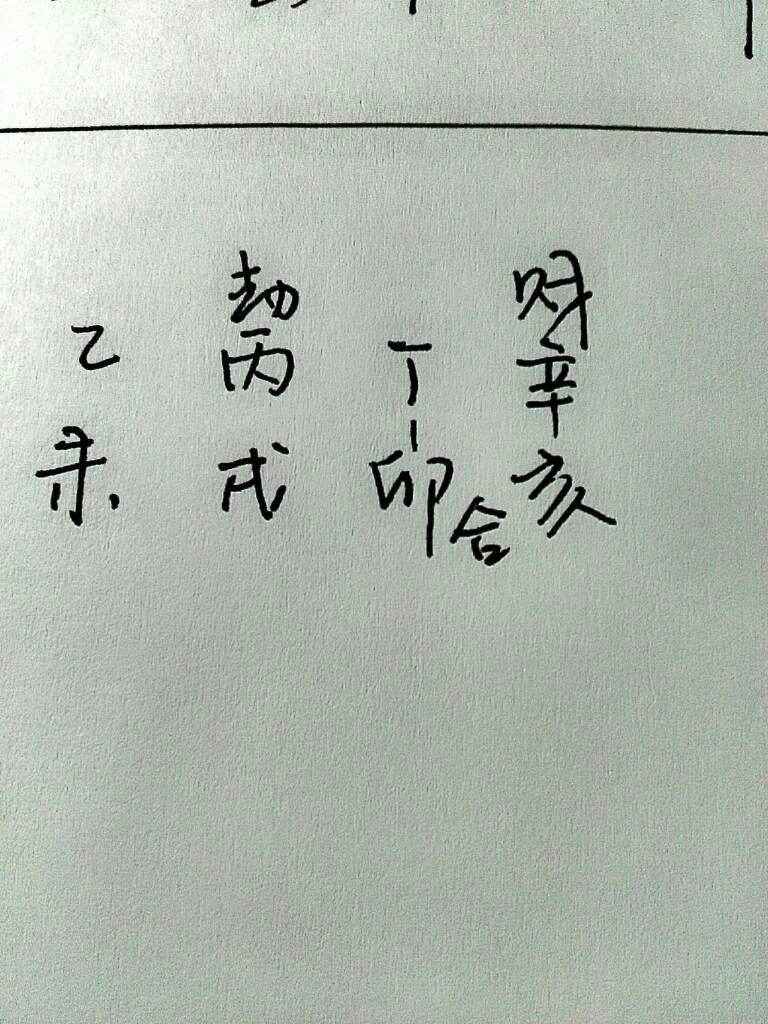 劫 财
乙 丙 丁 辛
未 戌 卯 合 亥